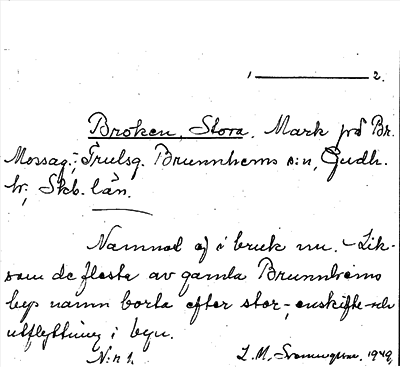 1 ——— 2.
Broken, Stora. Mark på Br.
Mossag., Trulsg. Brunnhems s:n, Gudh.
hr, Skb. län.
Namnet ej i bruk nu. - Lik-
som de flesta av gamla Brunnhems
bys namn borta efter stor-, enskifte- och
utflyttning i byn.
N:r 1. L. M. 1949.